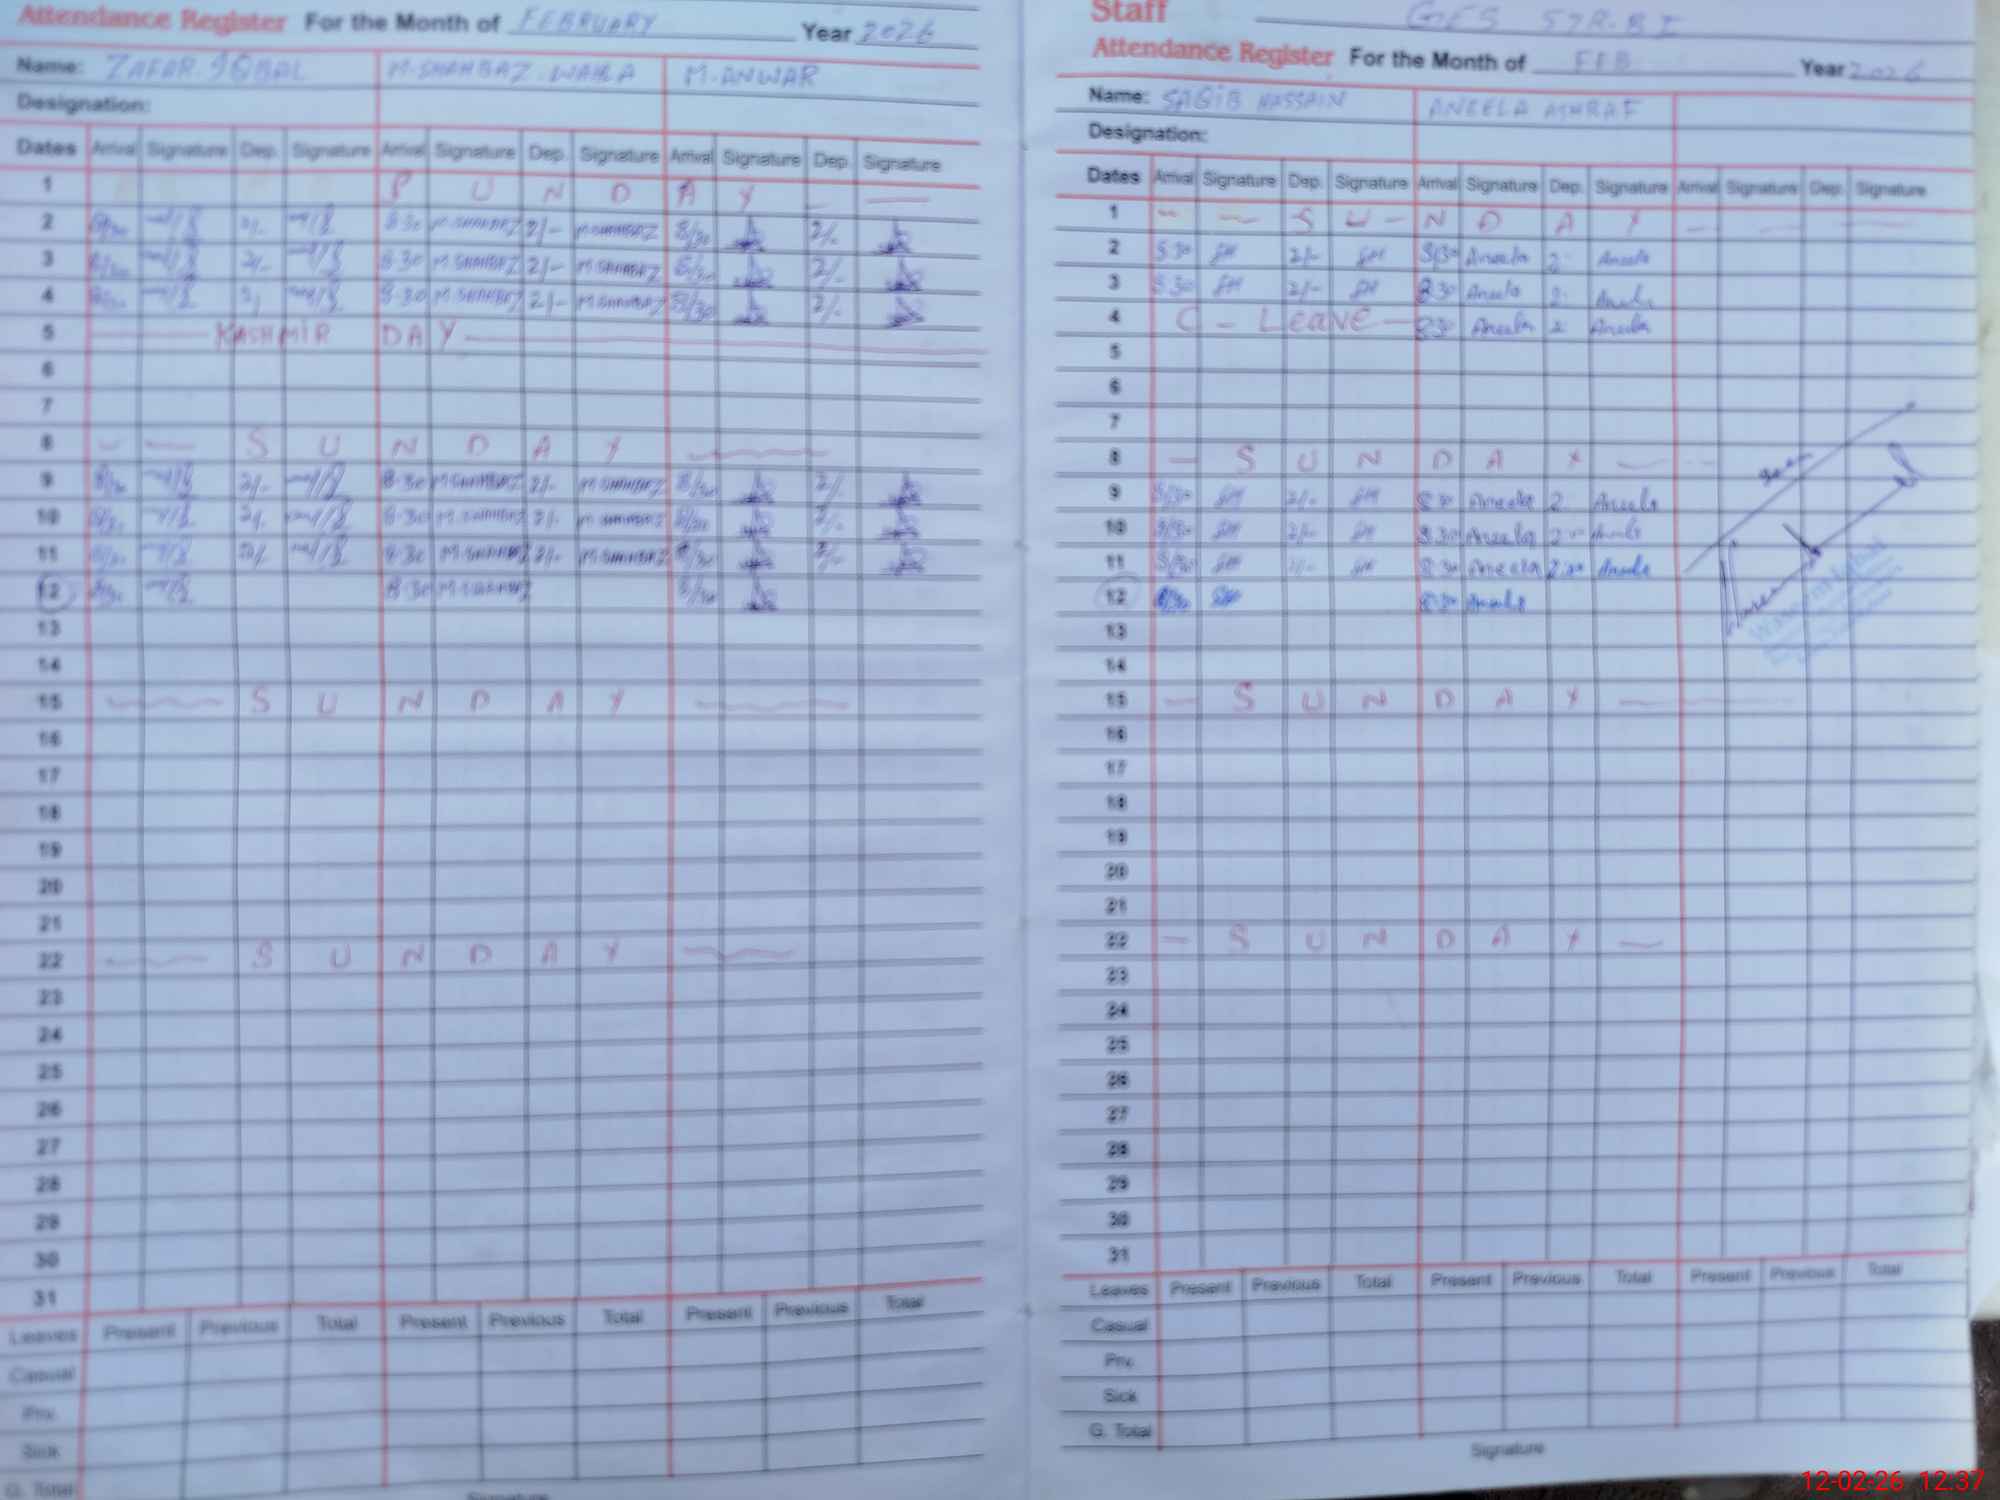 Attendance Register For the Month of FEBRUARY Year 2026
Name: ZAFAR IQBAL M.SHAHBAZ.WAHLA M.ANWAR
Designation:
Dates Arrival Signature Dep. Signature Arrival Signature Dep. Signature Arrival Signature Dep. Signature
1 S U N D A Y
2 2/- 8:30 M.SHAHBAZ 2/- M.SHAHBAZ 8/30 2/-
3 2/- 8:30 M.SHAHBAZ 2/- M.SHAHBAZ 8/30 2/-
4 8:30 M.SHAHBAZ 2/- M.SHAHBAZ 8/30 2/-
5 KASHMIR DAY
6
7
8 S U N D A Y
9 8/30 2/- 8:30 M.SHAHBAZ 2/- M.SHAHBAZ 8/30 2/-
10 8/30 2/- 8:30 M.SHAHBAZ 2/- M.SHAHBAZ 8/30 2/-
11 8/30 2/- 8:30 M.SHAHBAZ 2/- M.SHAHBAZ 8/30 2/-
12 8/30 8:30 M.SHAHBAZ 8/30
13
14
15 S U N D A Y
16
17
18
19
20
21
22 S U N D A Y
23
24
25
26
27
28
29
30
31
Leaves Present Previous Total Present Previous Total Present Previous Total
Casual
Priv.
Sick
G. Total
Signature
Staff GES 57R.BI
Attendance Register For the Month of FEB Year 2026
Name: SAQIB HASSAIN ANEELA ASHRAF
Designation:
Dates Arrival Signature Dep. Signature Arrival Signature Dep. Signature Arrival Signature Dep. Signature
1 S U N D A Y
2 8:30 SH 2/- SH 8:30 Aneela 2 Aneela
3 8:30 SH 2/- SH 8:30 Aneela 2 Aneela
4 C - Leave 8:30 Aneela 2 Aneela
5
6
7
8 S U N D A Y
9 8/30 SH 2/- SH 8:30 Aneela 2 Aneela
10 8/30 SH 2/- SH 8:30 Aneela 2 Aneela
11 8/30 SH 2/- SH 8:30 Aneela 2:00 Aneela
12 8/30 SH 8:30 Aneela
seen
13
14
15 S U N D A Y
16
17
18
19
20
21
22 S U N D A Y
23
24
25
26
27
28
29
30
31
Leaves Present Previous Total Present Previous Total Present Previous Total
Casual
Priv.
Sick
G. Total
Signature
12-02-26 12:37